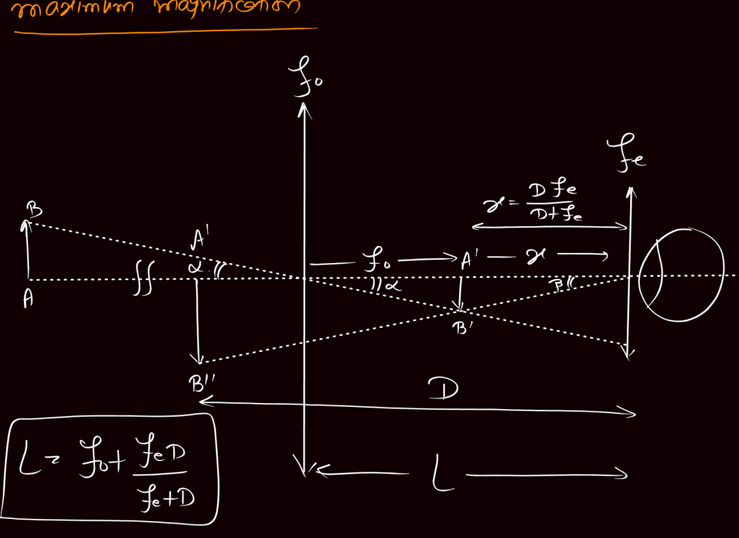 maximum magnification
fo
fe
x = D fe / D + fe
B
A'
α
fo
A'
x
A
α
β
B'
B''
D
L = fo + fe D / fe + D
L